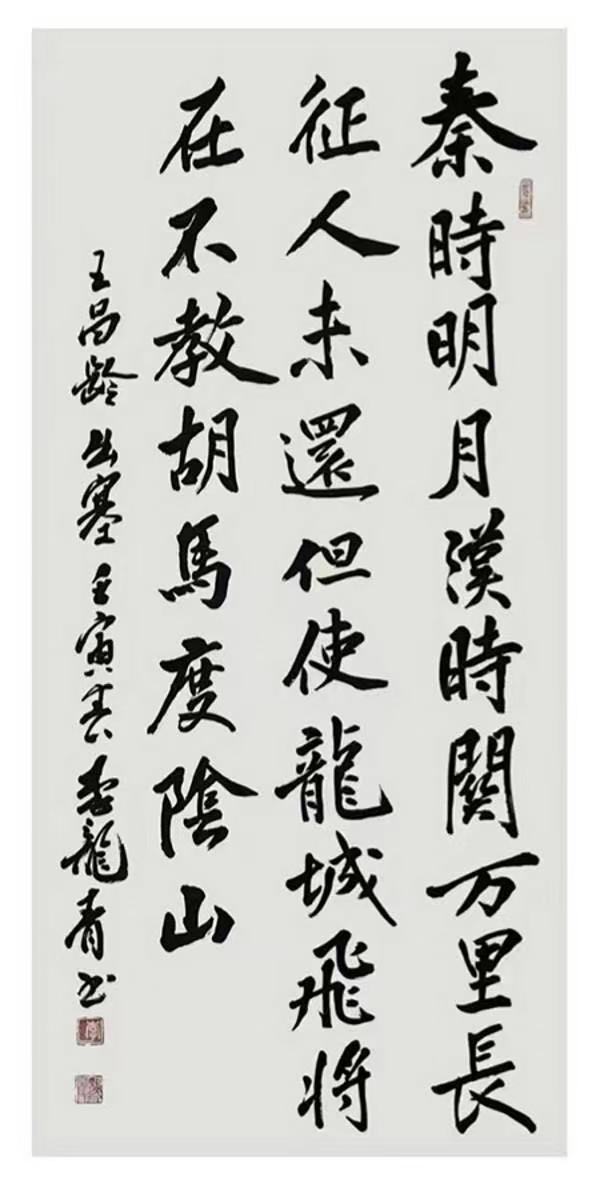 秦時明月漢時關万里長
征人未還但使龍城飛將
在不教胡馬度陰山
王昌齡出塞壬寅春李龍青书